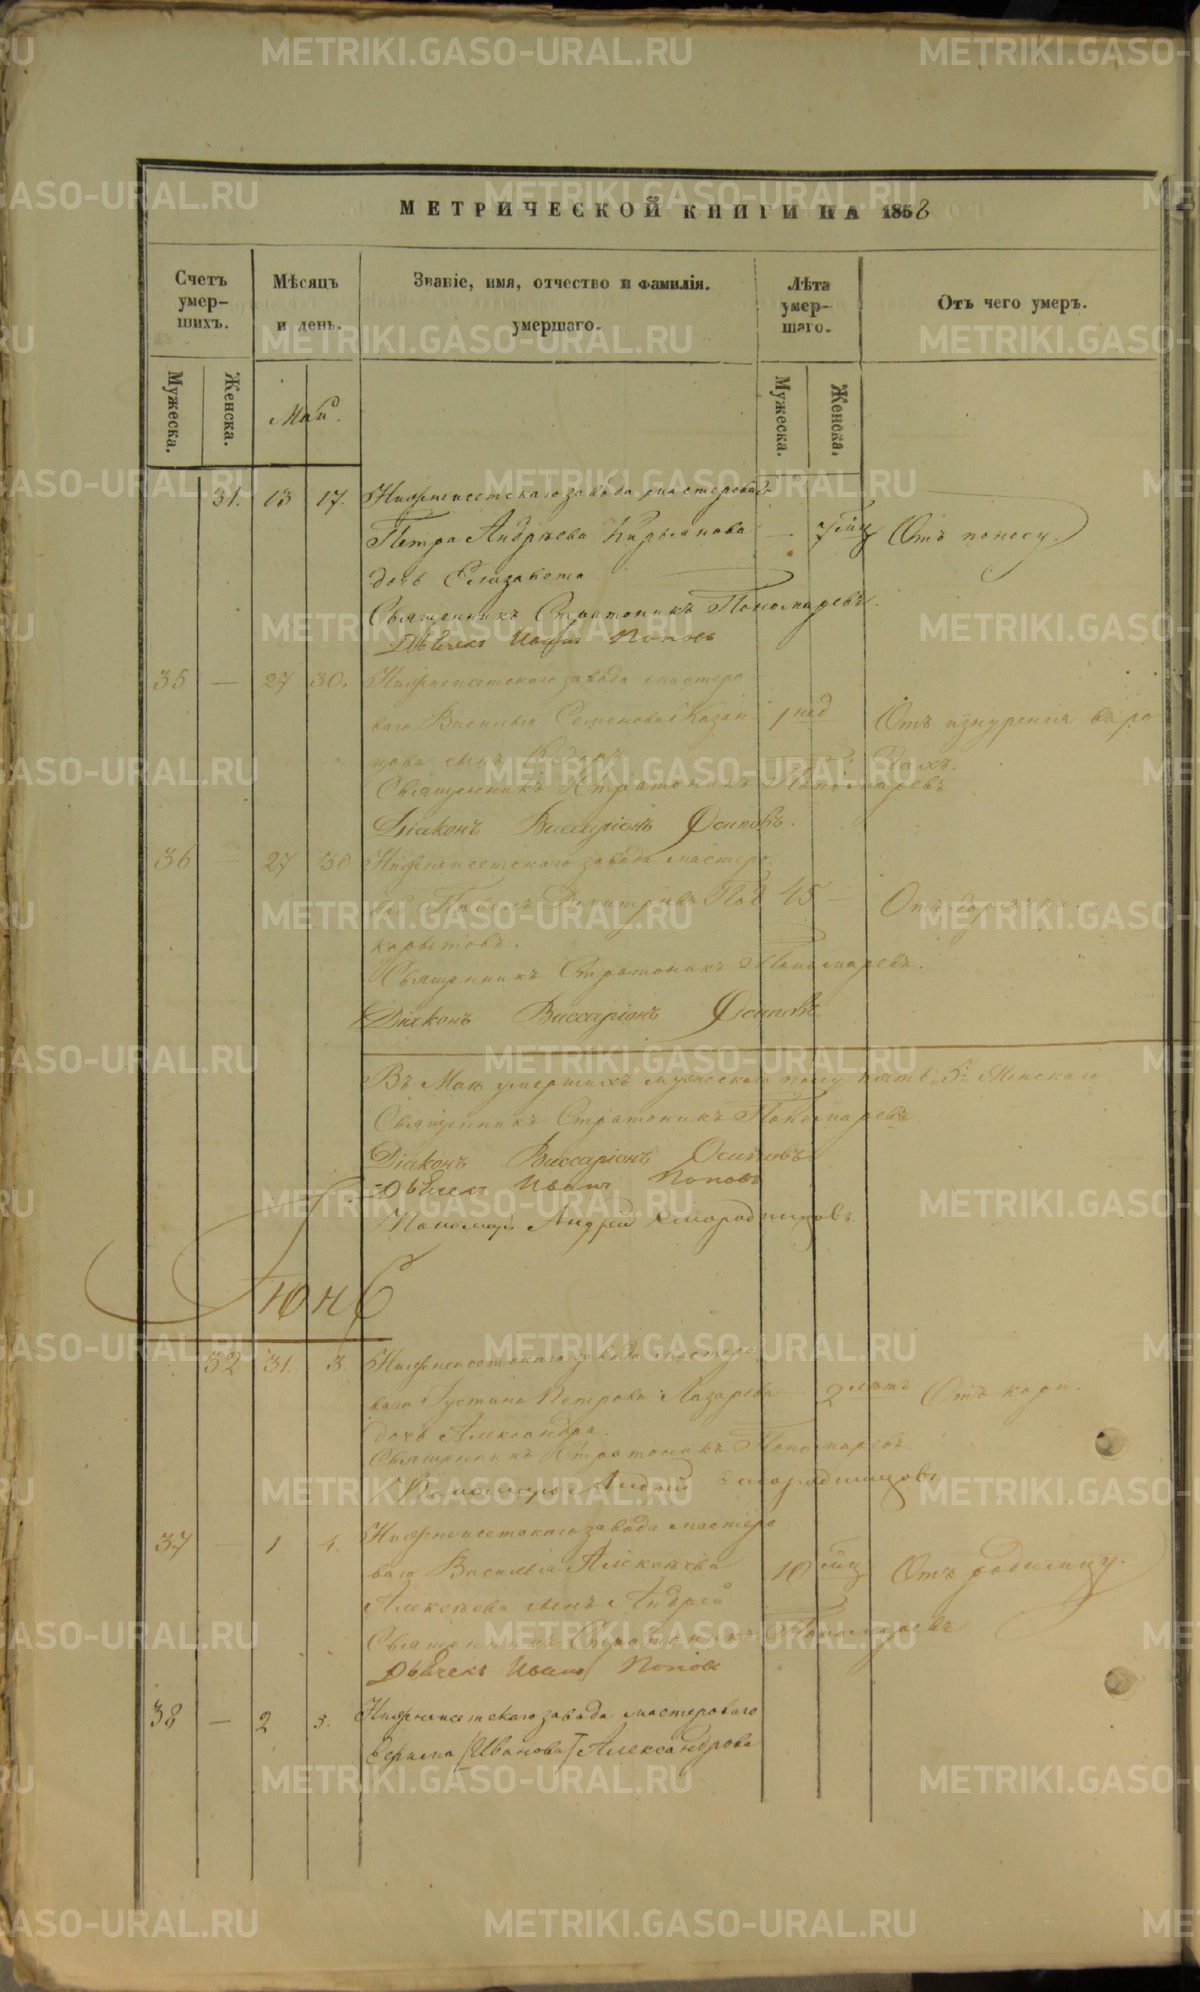 МЕТРИЧЕСКОЙ КНИГИ НА 1858
Счетъ умер-
шихъ.
Мѣсяцъ
и день.
Званіе, имя, отчество и фамилія.
умершаго.
Лѣта
умер-
шаго.
Отъ чего умеръ.
Мужеска.
Женска.
Май.
Мужеска.
Женска.
31. 13 17. Нижнеисетскаго завода мастероваго
Петра Андрѣева Кирьянова — 7 мц Отъ поносу.
дочь Елизавета
Священникъ Стратоникъ Пономаревъ.
Дьячекъ Иванъ Поповъ
35 — 27 30. Нижнеисетскаго завода мастеро
ваго Василья Семенова Казан 1 нед Отъ изнуренія въ ро
цова сынъ дахъ.
Священникъ Стратоникъ Пономаревъ
Діаконъ Виссаріонъ Осиповъ.
36 — 27 30 Нижнеисетскаго завода мастеро
вой Павелъ Димитріевъ Под 45 — Отъ горячки.
корытовъ.
Священникъ Стратоникъ Пономаревъ.
Діаконъ Виссаріонъ Осиповъ.
Въ Маѣ умершихъ мужескаго полу пять 5. Женскаго
Священникъ Стратоникъ Пономаревъ
Діаконъ Виссаріонъ Осиповъ
Дьячекъ Иванъ Поповъ
Пономарь Андрей Смородинцовъ.
Іюнь
32 31. 3. Нижнеисетскаго завода мастеро
ваго Густина Петрова Лазарева — 2 лѣтъ Отъ кори.
дочь Александра.
Священникъ Стратоникъ Пономаревъ.
Пономарь Андрей Смородинцовъ
37 — 1 4. Нижнеисетскаго завода мастеро
ваго Василія Алексѣева 10 мц Отъ родимцу.
Алексѣева сынъ Андрей
Священникъ Стратоникъ Пономаревъ
Дьячекъ Иванъ Поповъ
38 — 2 5. Нижнеисетскаго завода мастероваго
Ефима (Иванова) Александрова
METRIKI.GASO-URAL.RU